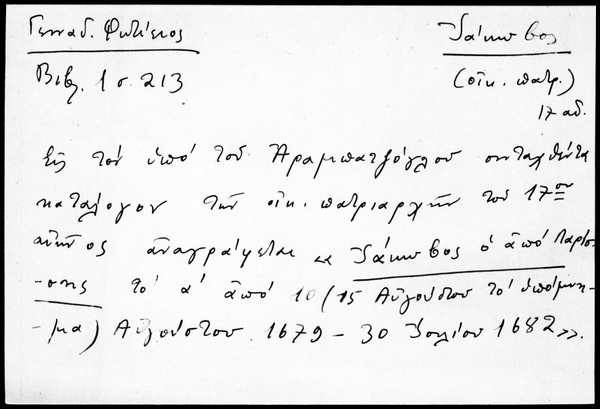 Γενναδ. Φωτίειος
Ἰάκωβος
Βιβλ. 1 σ. 213
(οἰκ. πατρ.)
17 αἰ.
Εἰς τόν ὑπό τοῦ Ἀραμπατζόγλου συνταχθέντα
κατάλογον τῶν οἰκ. πατριαρχῶν τοῦ 17ου
αἰῶνος ἀναγράφεται « Ἰάκωβος ὁ ἀπό Λαρίσ-
-σης τό α' ἀπό 10 (15 Αὐγούστου τό ὑπόμνη-
-μα) Αὐγούστου 1679 – 30 Ἰουλίου 1682».